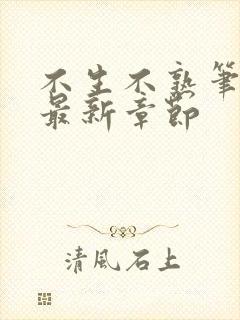 不生不熟筆
最新章節
清風石上